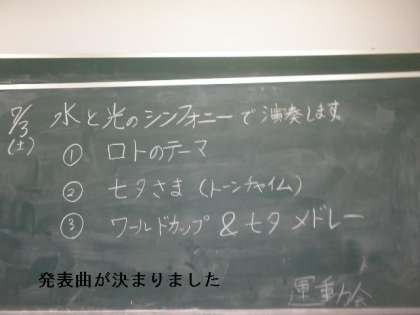 7/3(土) 水と光のシンフォニーで演奏します
① ロトのテーマ
② 七夕さま(トーンチャイム)
③ ワールドカップ&七夕メドレー
発表曲が決まりました
運動会